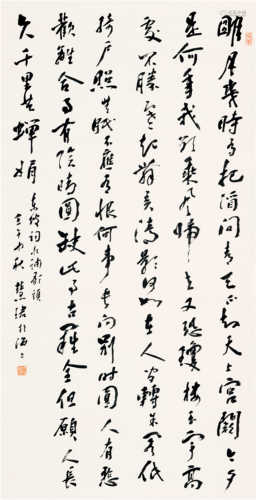 明月幾時有把酒問青天不知天上宮闕今夕
是何年我欲乘風歸去又恐瓊樓玉宇高
處不勝寒起舞弄清影何似在人間轉朱閣低
綺戶照無眠不應有恨何事長向別時圓人有悲
歡離合月有陰晴圓缺此事古難全但願人長
久千里共嬋娟
東坡詞水調歌頭
秋慧珺於海上